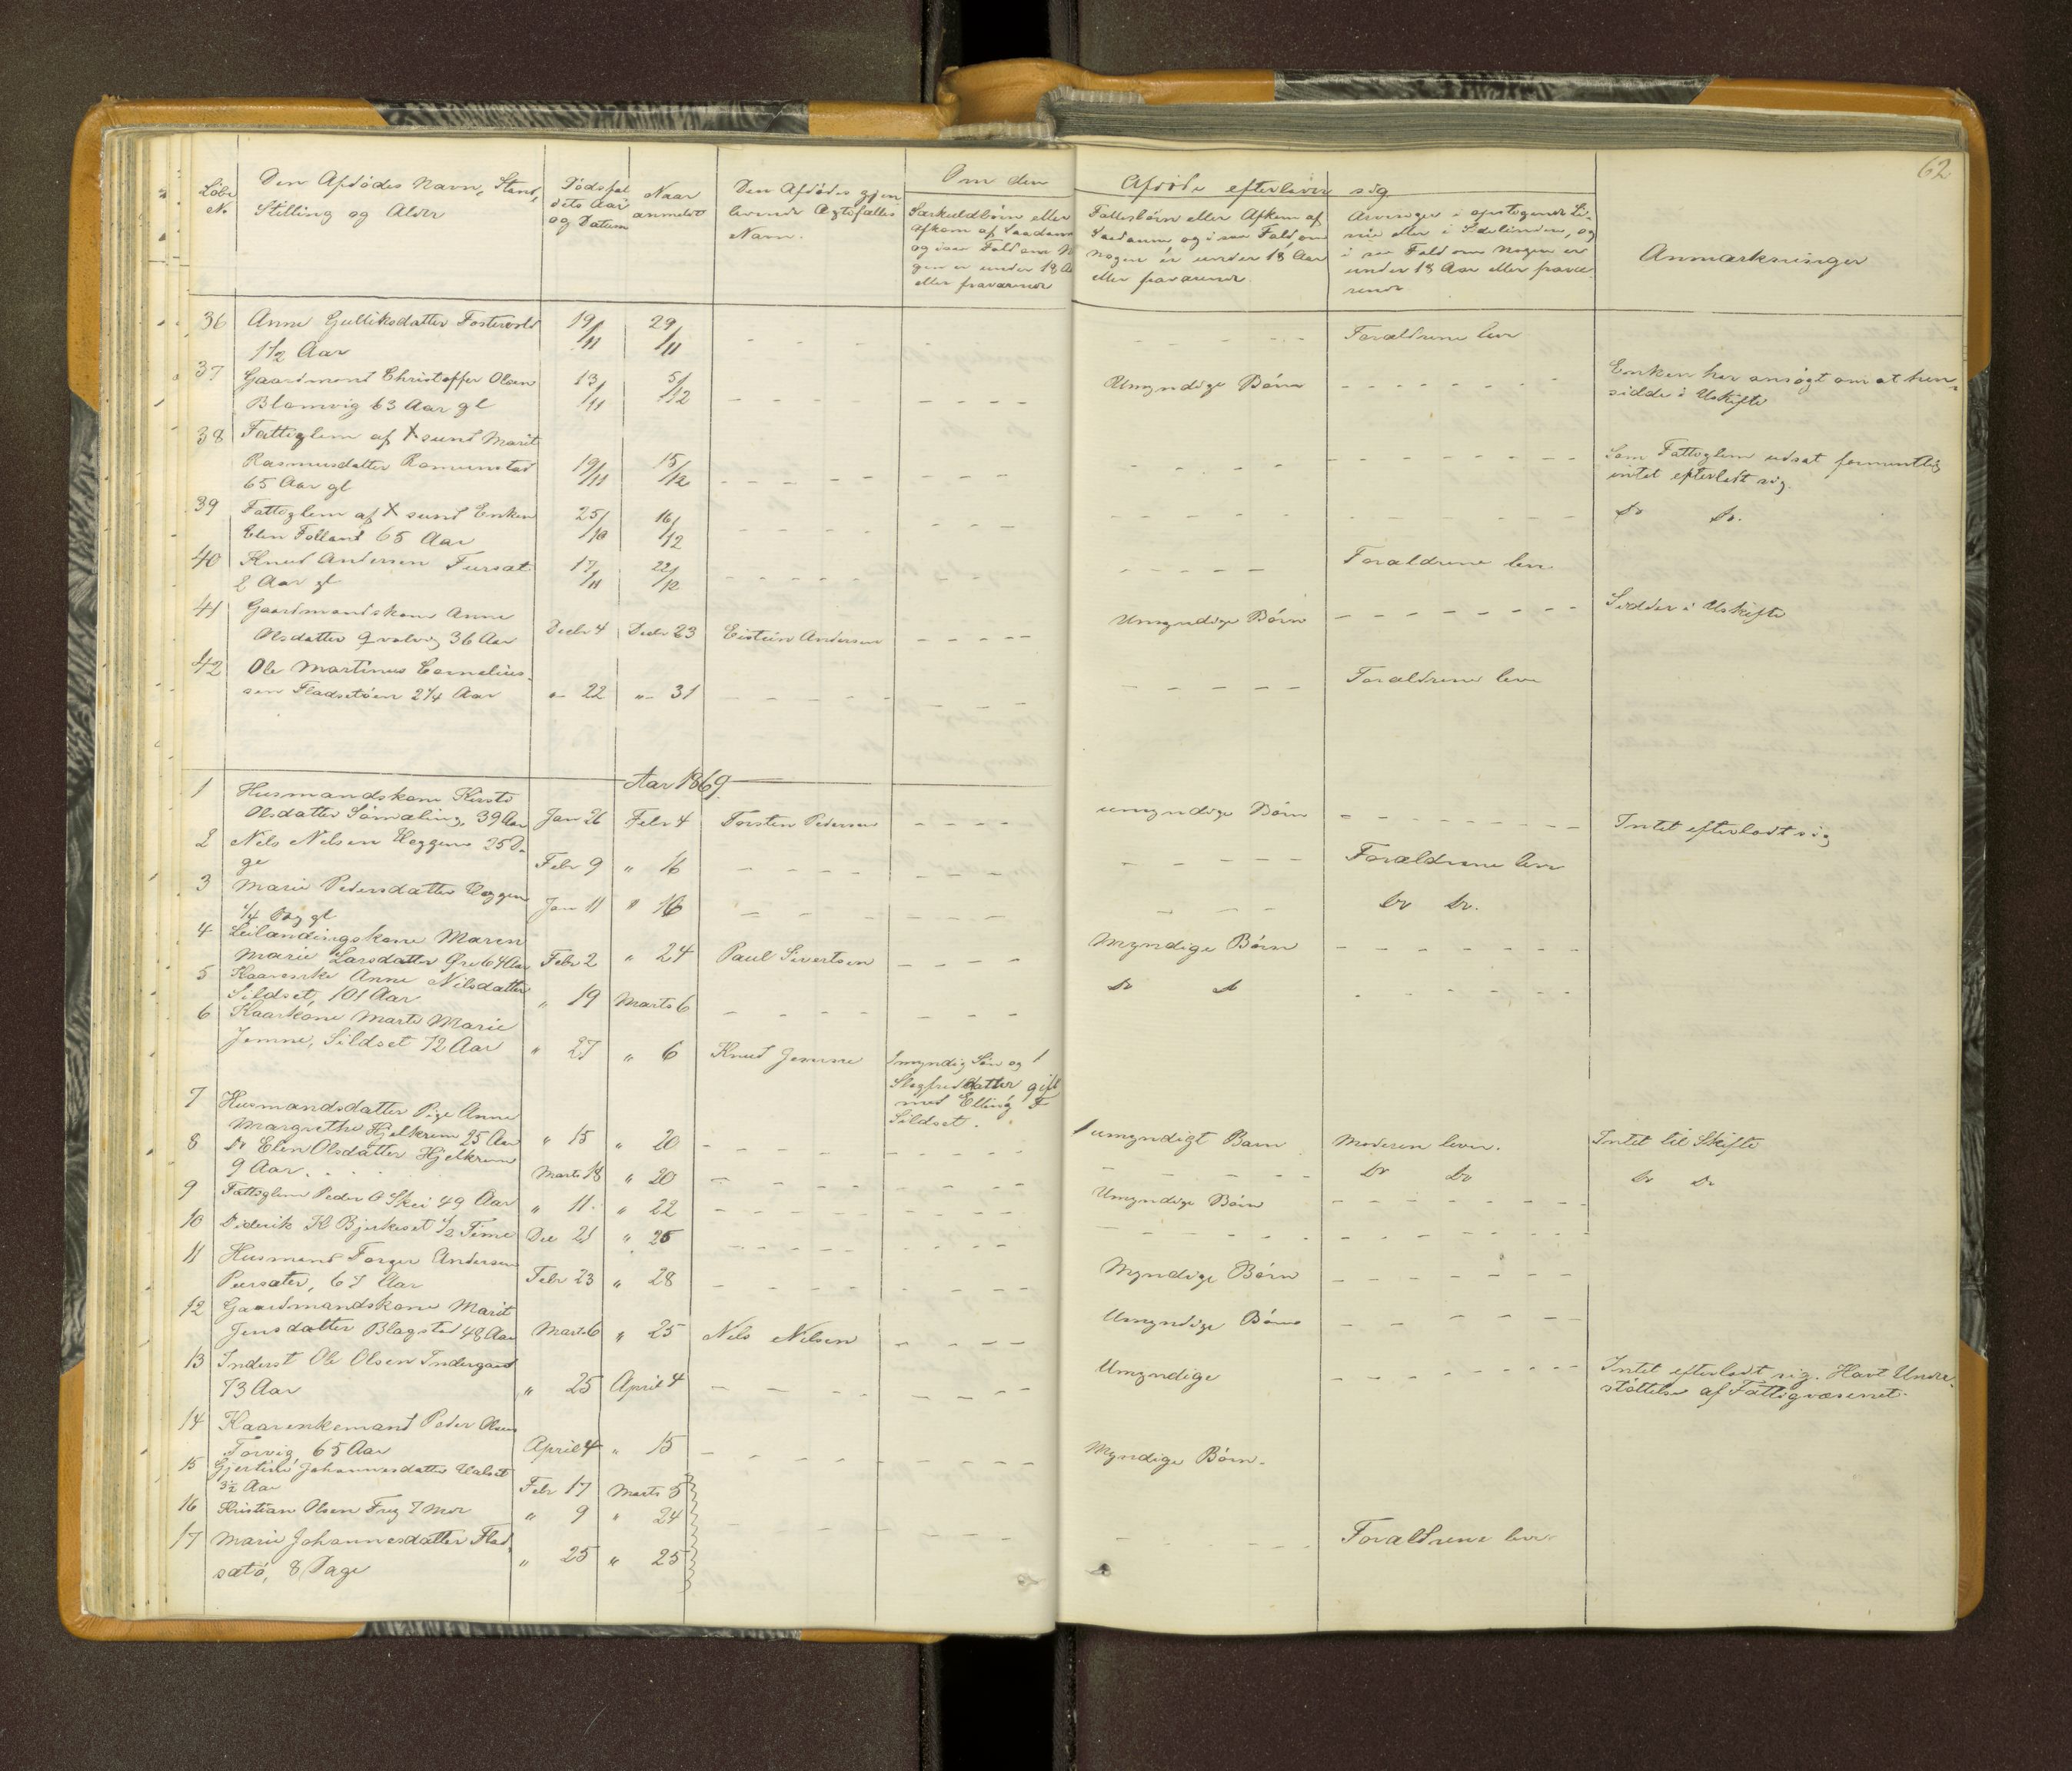 62
Løbe No | Den Afdødes Navn, Stand, Stilling og Alder | Dødsfaldets Aar og Datum | Naar anmeldt | Den Afdødes gjenlevende Ægtefælles Navn. | Om den Afdøde efterlever sig
Særkuldbørn eller Afkom af Saadanne og i saa Fald om Nogen er under 18 Aar eller fraværende | Fællesbørn eller Afkom af Saadanne, og i saa Fald, om Nogen er under 18 Aar eller fraværende | Arvinger i opstigende Linie eller i Sidelinien, og i saa Fald om Nogen er under 18 Aar eller fraværende | Anmærkninger
36 Anne Gulliksdatter Fostervold 1½ Aar 19/11 29/11 Forældrene lever
37 Gaardmand Christoffer Olsen Blomvig 63 Aar gl 13/11 5/12 Umyndige Børn Enken har ansøgt om at hensidde i Uskifte
38 Fattiglem af Xsund Marit Rasmusdatter Romunstad 65 Aar gl 19/11 15/12 Som Fattiglem udsat formentlig intet efterladt sig.
39 Fattiglem af Xsund Enken Elen Folland 65 Aar 25/10 16/12 Do Do.
40 Knud Andersen Fursæt 2 Aar gl 17/11 22/12 Forældrene lever
41 Gaardmandskone Anne Olsdatter Qvalvig 36 Aar Decbr 4 Decbr 23 Eistein Andersen Umyndige Børn Sidder i Uskifte
42 Ole Martinus Corneliussen Fladsetøen 2¼ Aar „ 22 „ 31 Forældrene lever
Aar 1869
1 Husmandskone Kirsti Olsdatter Sømæling, 39 Aar Jan 26 Febr 4 Torsten Pedersen umyndige Børn Intet efterladt sig
2 Nels Nelsen Heggem 25 Dage Febr 9 „ 16 Forældrene lever
3 Marie Pedersdatter Heggem ¼ Dag gl Jan 11 „ 16 Do Do.
4 Leilændingskone Maren Marie Larsdatter Øre 64 Aar Febr 2 „ 24 Paul Sivertsen Myndige Børn
5 Kaarenke Anne Nilsdatter Sildset, 101 Aar „ 19 Marts 6 Do Do
6 Kaarkone Marte Marie Jemne, Sildset 72 Aar „ 27 „ 6 Knud Jemne 1 myndig Søn og 1 Slegfreddatter gift med Elling F Sildset.
7 Husmandsdatter Pige Anne Margrethe Hjelkrem 25 Aar „ 15 „ 20 1 umyndigt Barn Moderen lever. Intet til Skifte
8 Do Elen Olsdatter Hjelkrem 9 Aar. Marts 18 „ 20 Do Do Do Do
9 Fattiglem Peder O Skei 49 Aar „ 11. „ 22 Umyndige Børn
10 Diderik K Bjerkeset ½ Time Dec 21 „ 25
11 Husmand Torger Andersen Pursæter, 67 Aar Febr 23 „ 28 Myndige Børn
12 Gaardmandskone Marit Jensdatter Blagstad 48 Aar Marts 6 „ 25 Nils Nilsen Umyndige Børn
13 Inderst Ole Olsen Indergaard 73 Aar „ 25 April 4 Umyndige Intet efterladt sig. Havt Understøttelse af Fattigvæsenet.
14 Kaarenkemand Peder Olsen Torvig, 65 Aar April 4 „ 15 Myndige Børn.
15 Gjertine Johannesdatter Halset 3½ Aar Febr 17 Marts 5
16 Kristian Olsen Frey 7 Mdr „ 9 „ 24
17 Marie Johannesdatter Fladsætø, 8 Dage „ 25 „ 25 Forældrene lever